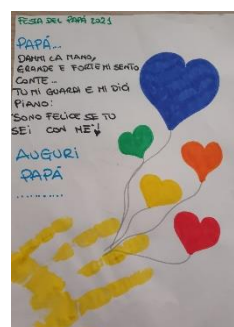 FESTA DEL PAPÀ 2021
PAPÀ...
DAMMI LA MANO,
GRANDE E FORTE MI SENTO
CON TE...
TU MI GUARDI E MI DICI
PIANO:
"SONO FELICE SE TU
SEI CON ME"!
AUGURI
PAPÀ